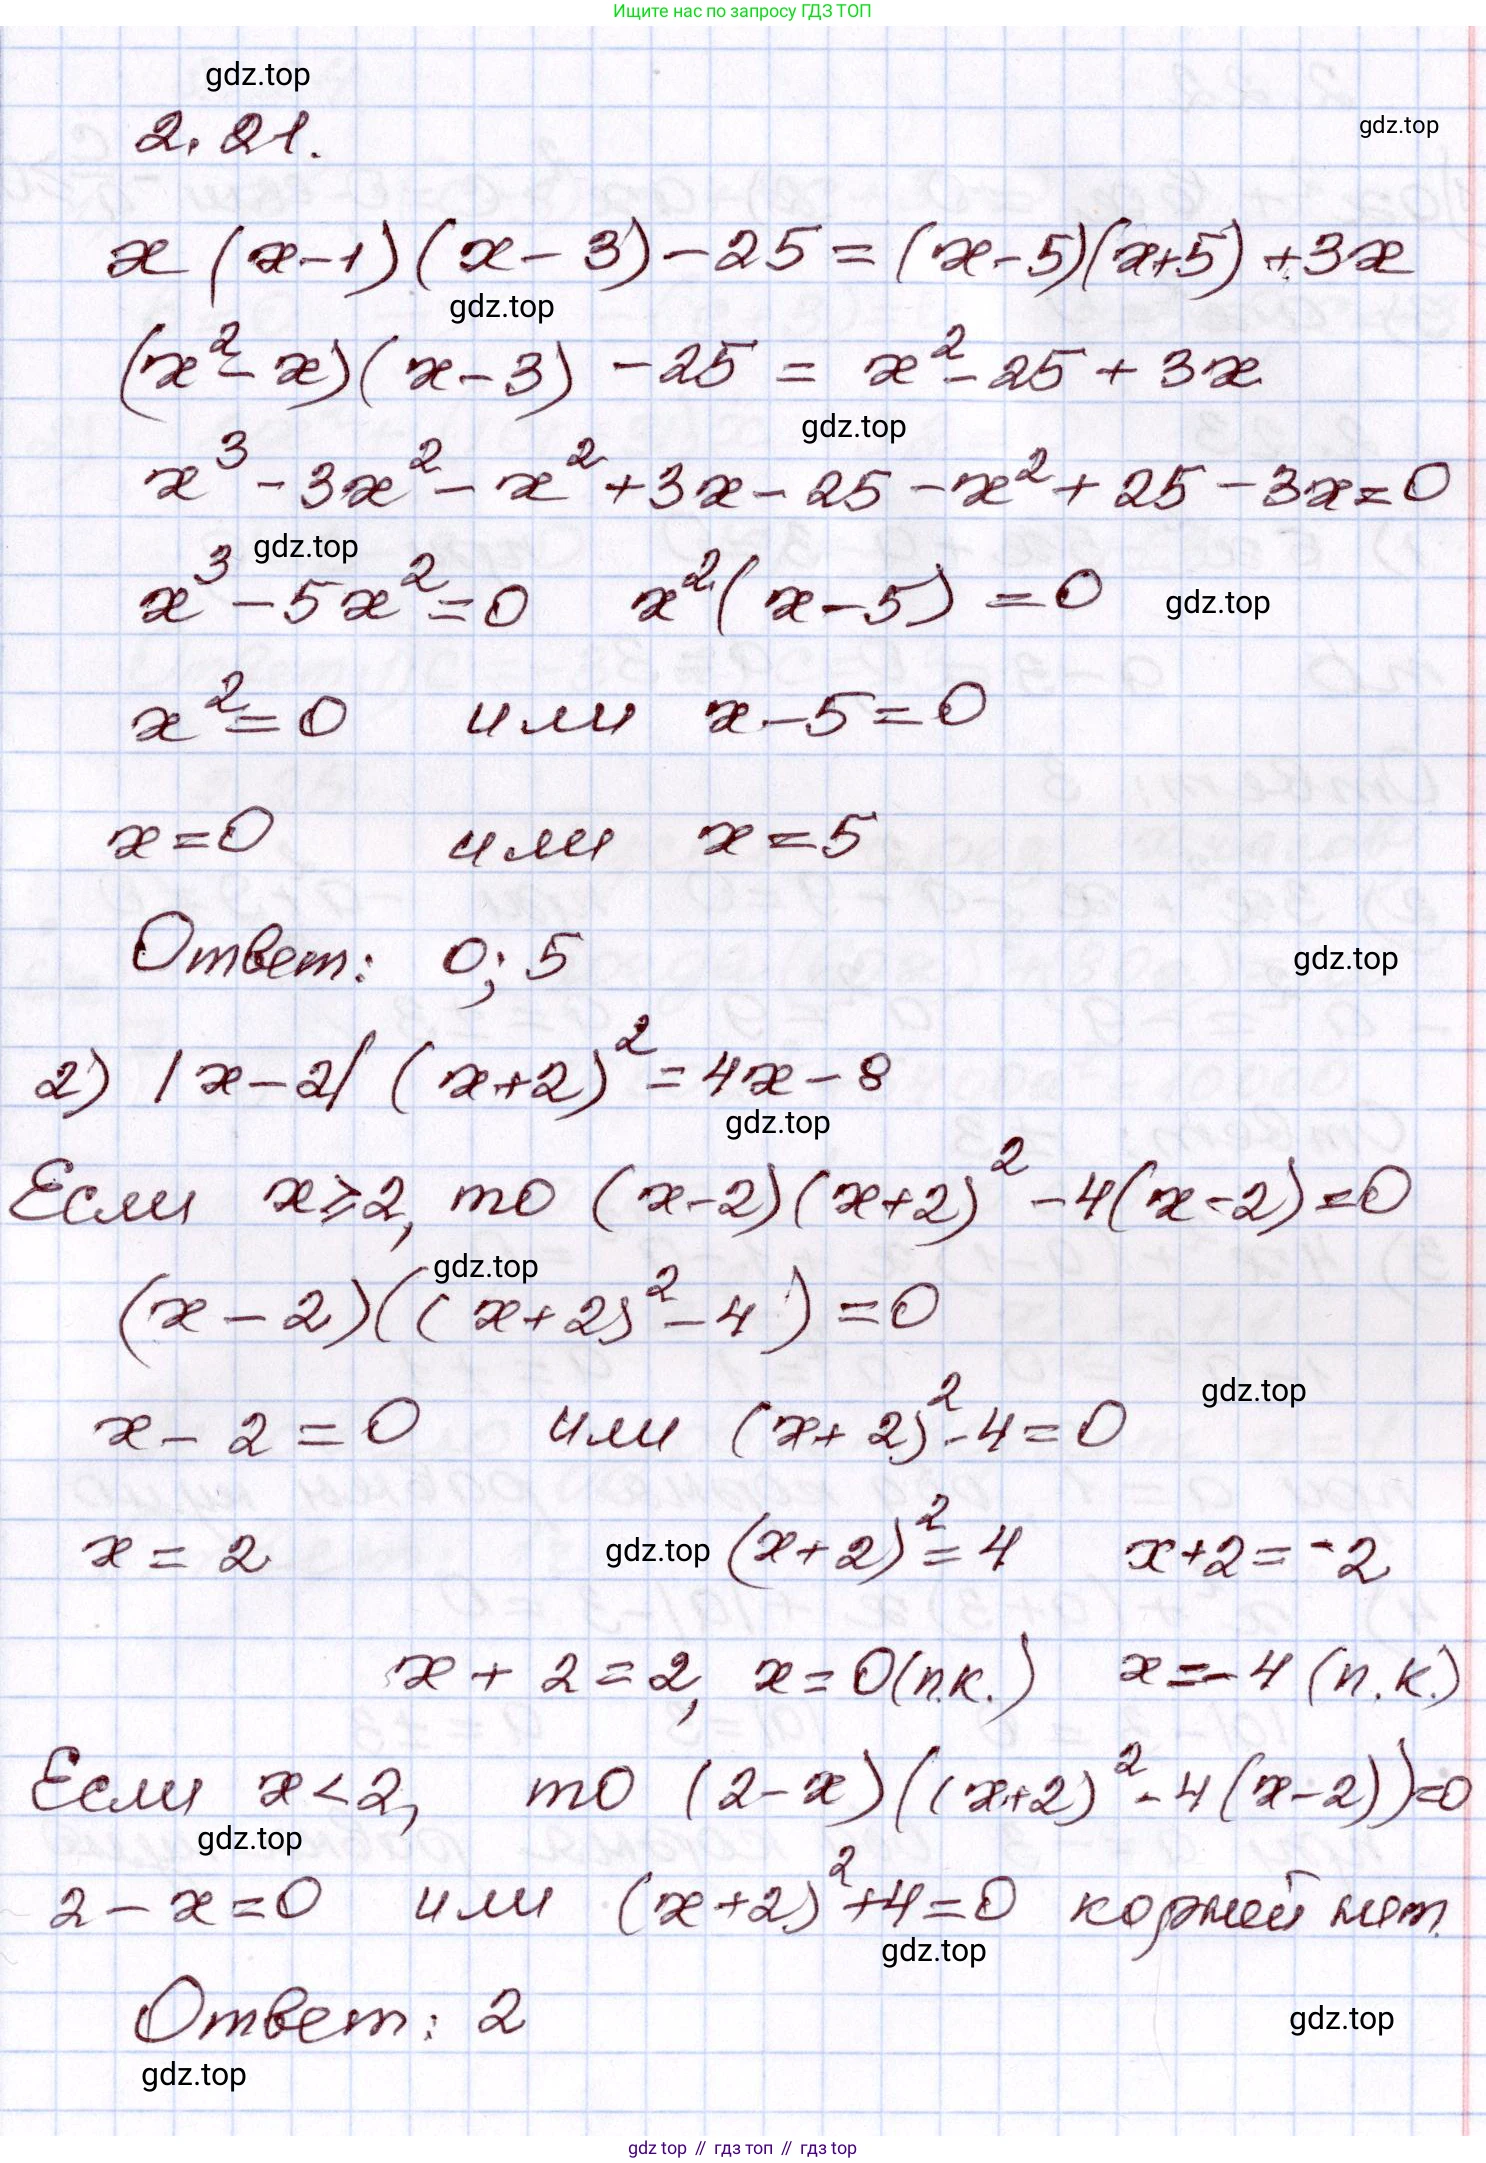 Ищите нас по запросу ГДЗ ТОП
gdz.top
2.21.
gdz.top
x(x-1)(x-3)-25=(x-5)(x+5)+3x
gdz.top
(x²-x)(x-3)-25=x²-25+3x
gdz.top
x³-3x²-x²+3x-25-x²+25-3x=0
gdz.top
x³-5x²=0 x²(x-5)=0 gdz.top
x²=0 или x-5=0
x=0 или x=5
Ответ: 0; 5 gdz.top
2) |x-2|(x+2)²=4x-8
gdz.top
Если x≥2, то (x-2)(x+2)²-4(x-2)=0
gdz.top
(x-2)((x+2)²-4)=0
gdz.top
x-2=0 или (x+2)²-4=0
x=2 gdz.top (x+2)²=4 x+2=-2
x+2=2, x=0(п.к.) x=-4(п.к.)
Если x<2, то (2-x)((x+2)²-4(x-2))=0
gdz.top
2-x=0 или (x+2)²+4=0 корней нет.
gdz.top
Ответ: 2
gdz.top
gdz.top
gdz top // гдз топ // gdz top